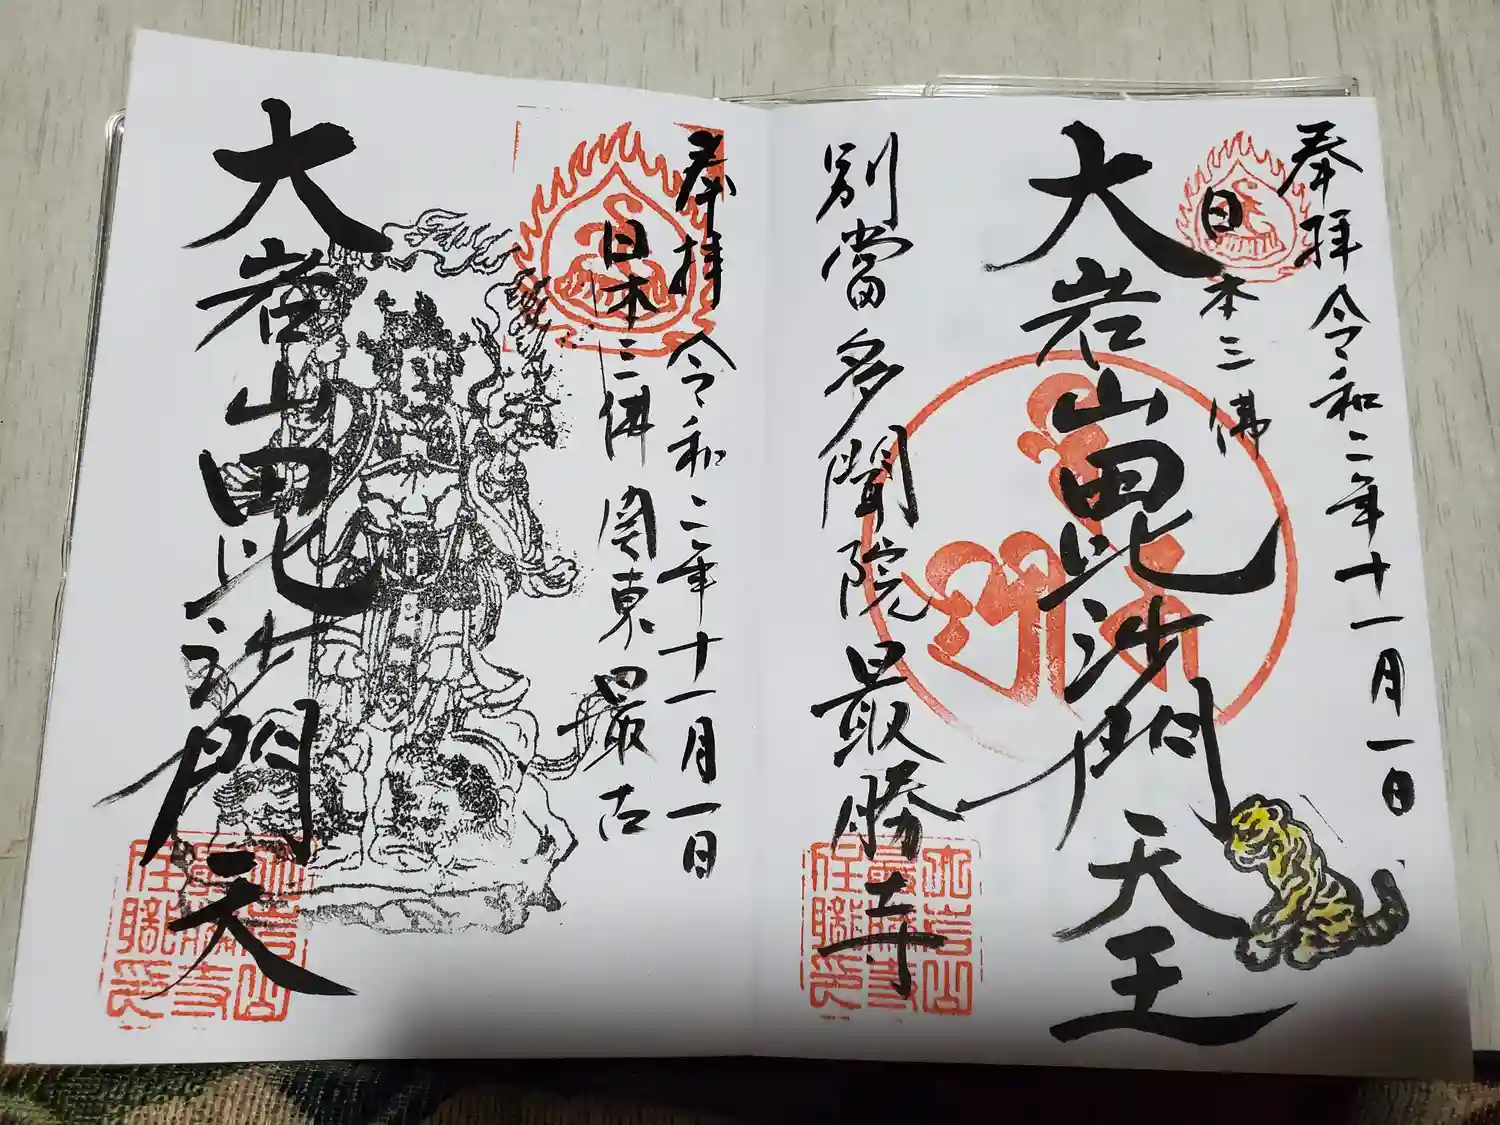 奉拝 令和二年十一月一日
日本三佛
大岩山毘沙門天王
別當多聞院最勝寺
大岩山
最勝寺
住職印
奉拝 令和二年十一月一日
日本三佛 関東最古
大岩山毘沙門天
大岩山
最勝寺
住職印